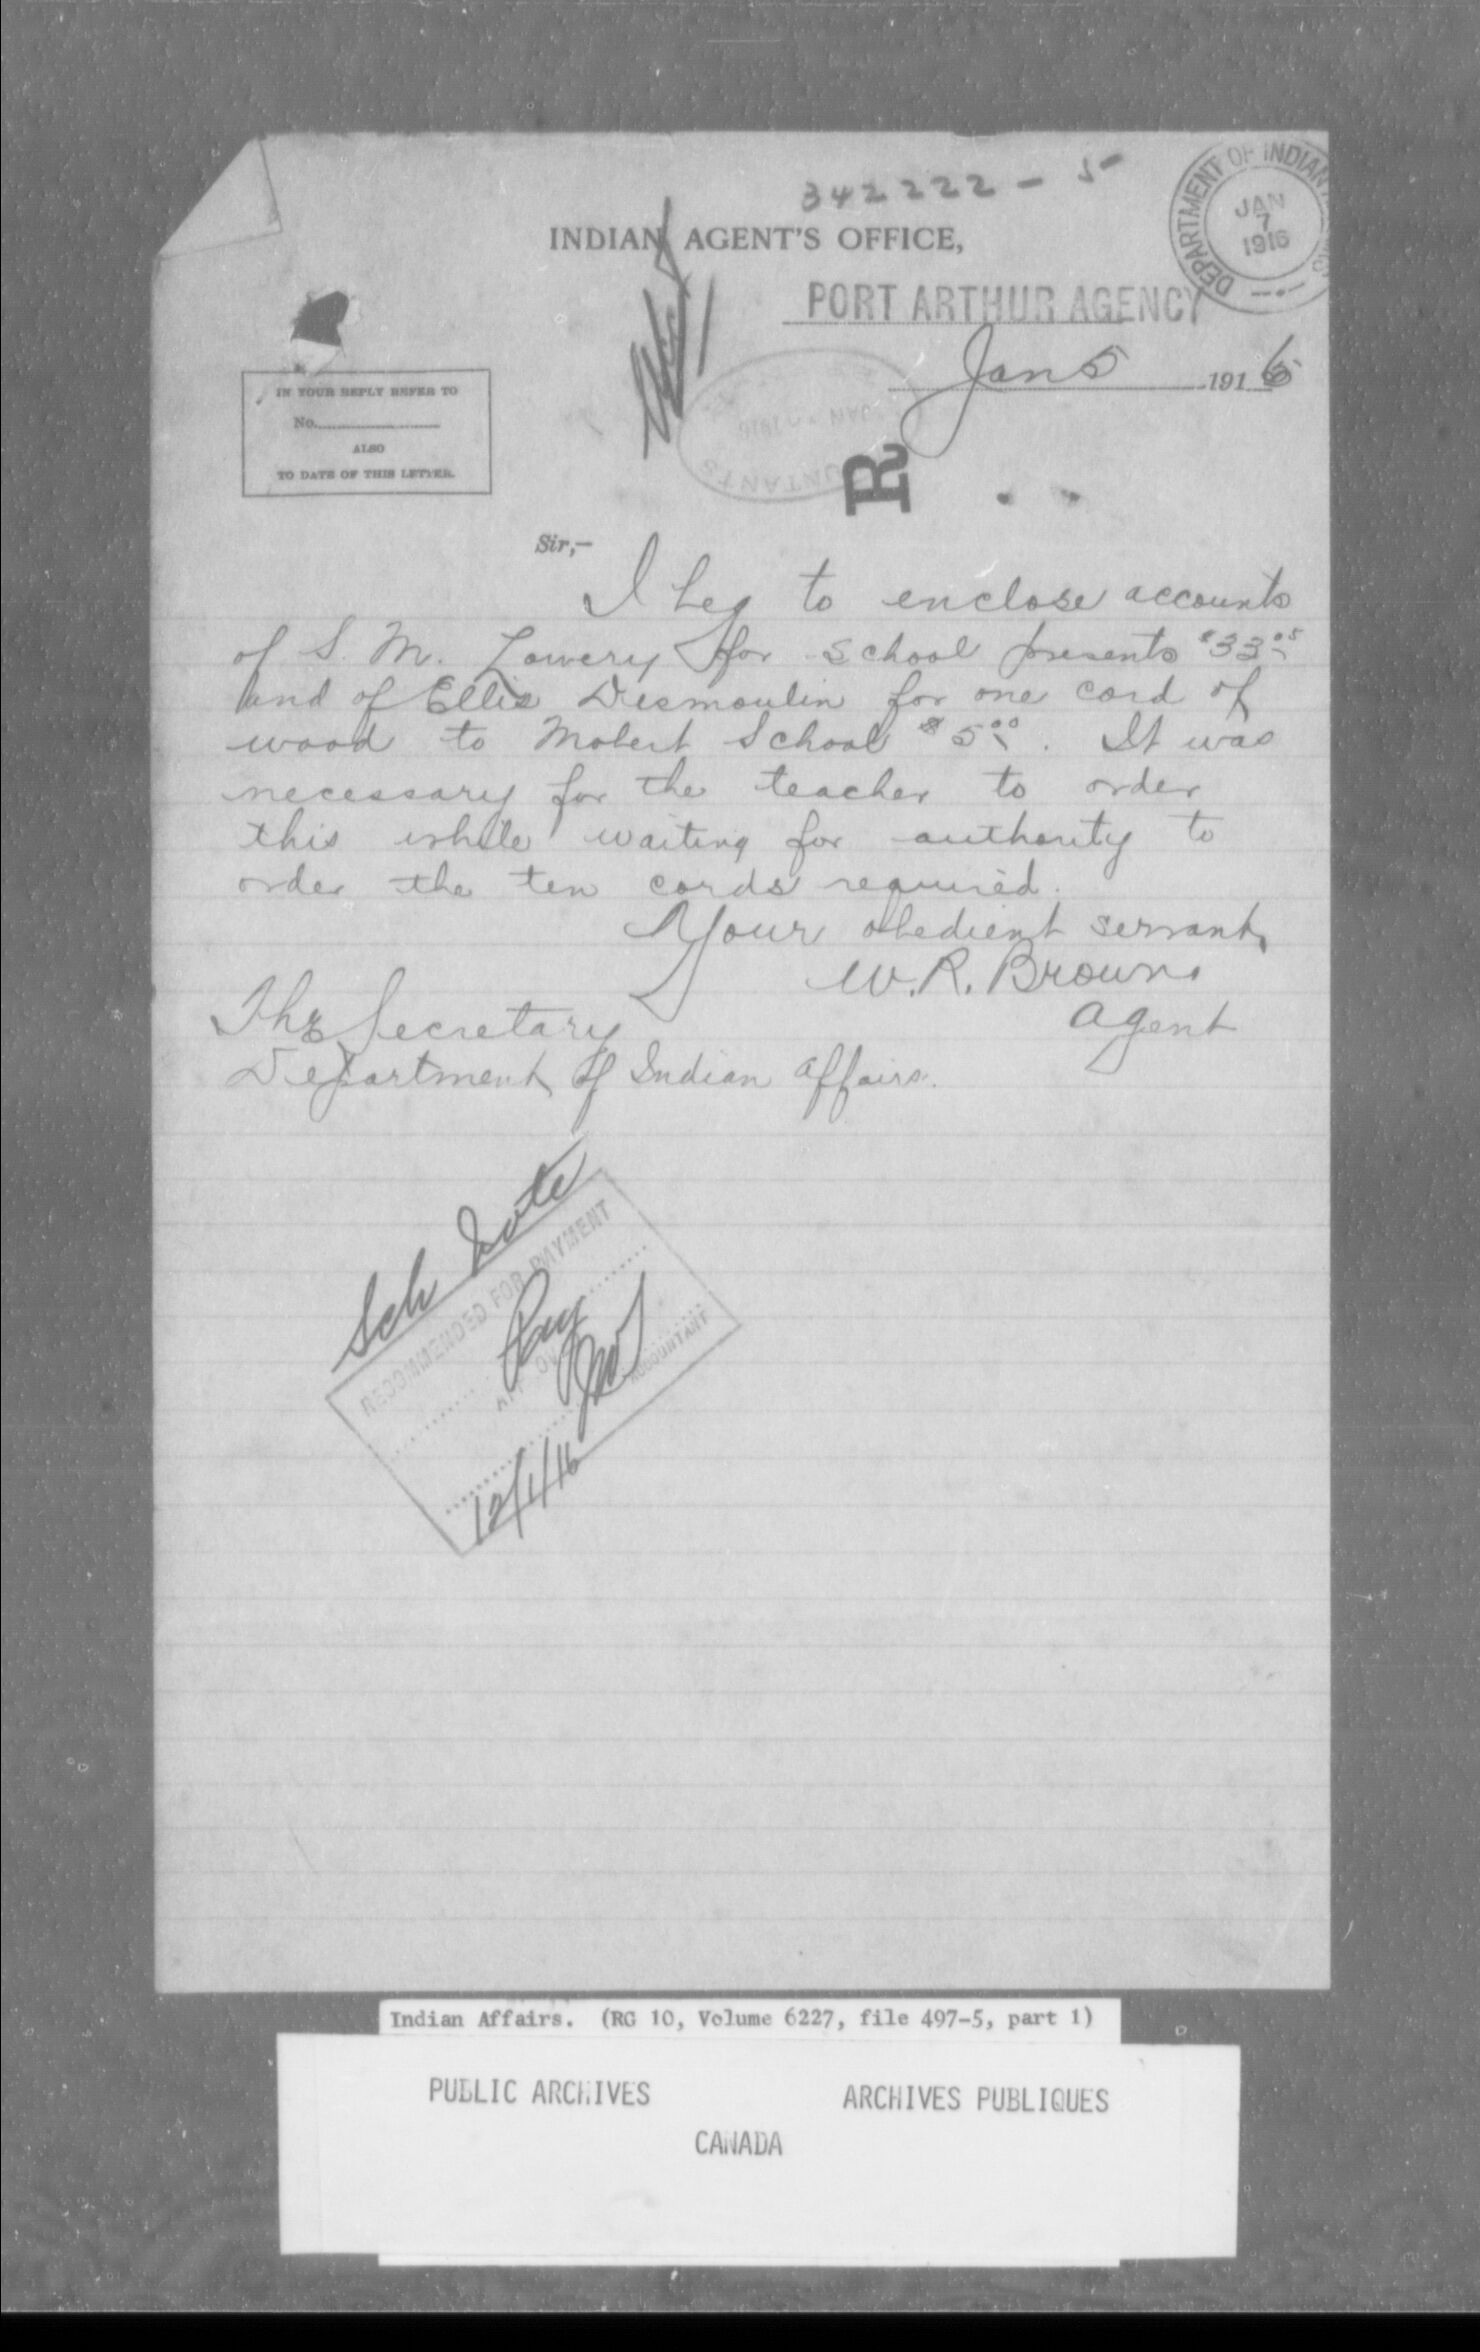 342222-5
INDIAN AGENT'S OFFICE,
DEPARTMENT OF INDIAN
JAN
7
1916
PORT ARTHUR AGENCY
Jan 5 1916
IN YOUR REPLY REFER TO
No.
ALSO
TO DATE OF THIS LETTER.
R
Sir,—
I beg to enclose accounts
of S. M. Lowery for school presents $33.05
and of Ellis Desmoulin for one cord of
wood to Mobert School $5.00. It was
necessary for the teacher to order
this while waiting for authority to
order the ten cords required.
Your obedient servant,
W. R. Brown
Agent
The Secretary
Department of Indian Affairs.
Sch Vote
RECOMMENDED FOR PAYMENT
Pay
ACCOUNTANT
12/1/16
Indian Affairs. (RG 10, Volume 6227, file 497-5, part 1)
PUBLIC ARCHIVES ARCHIVES PUBLIQUES
CANADA